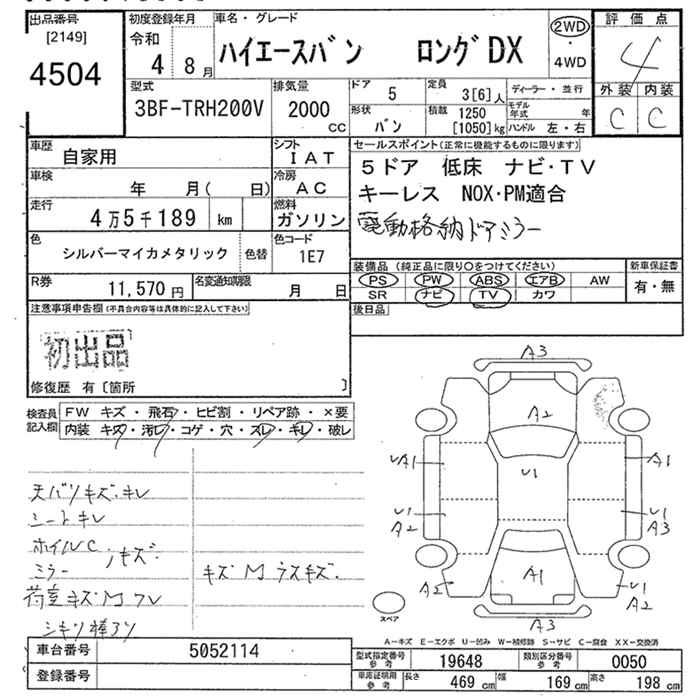 出品番号
[2149]
4504
初度登録年月
令和
4 8月
車名・グレード
ハイエースバン ロングDX
2WD
・
4WD
評価点
4
外装 内装
C C
型式
3BF-TRH200V
排気量
2000
cc
ドア 5
定員 3[6]人
ディーラー・並行
形状 バン
積載 1250
[1050]kg
モデル年式 年
ハンドル 左・右
車歴 自家用
シフト IAT
車検 年 月( 日)
冷房 AC
走行 4万5千189 km
燃料 ガソリン
色 シルバーマイカメタリック 色替
色コード 1E7
R券 11,570円
名変通知期限 月 日
セールスポイント(正常に機能するものに限ります)
5ドア 低床 ナビ・TV
キーレス NOX・PM適合
電動格納ドアミラー
装備品(純正品に限り〇をつけてください)
PS PW ABS エアB AW
SR ナビ TV カワ
新車保証書
有・無
後日品
注意事項申告欄(不具合内容等は具体的に記入して下さい)
初出品
修復歴 有[箇所 ]
検査員記入欄
FW キズ・飛石・ヒビ割・リペア跡・×要
内装 キズ・汚レ・コゲ・穴・スレ・キレ・破レ
天バリキズ・キレ
シートキレ
ホイルC
ミラー ノキズ・
荷室キズM フレ
シキリ棒アリ
キズM ウスキズ・
A3
A2
UA1
A1
U1
U1
A2
U1
A3
A2
A1
U1
A2
A3
スペア
A-キズ E-エクボ U-凹み W-補修跡 S-サビ C-腐食 XX-交換済
車台番号 5052114
登録番号
型式指定番号参考 19648
類別区分番号参考 0050
車庫証明用参考 長さ 469cm 幅 169cm 高さ 198cm